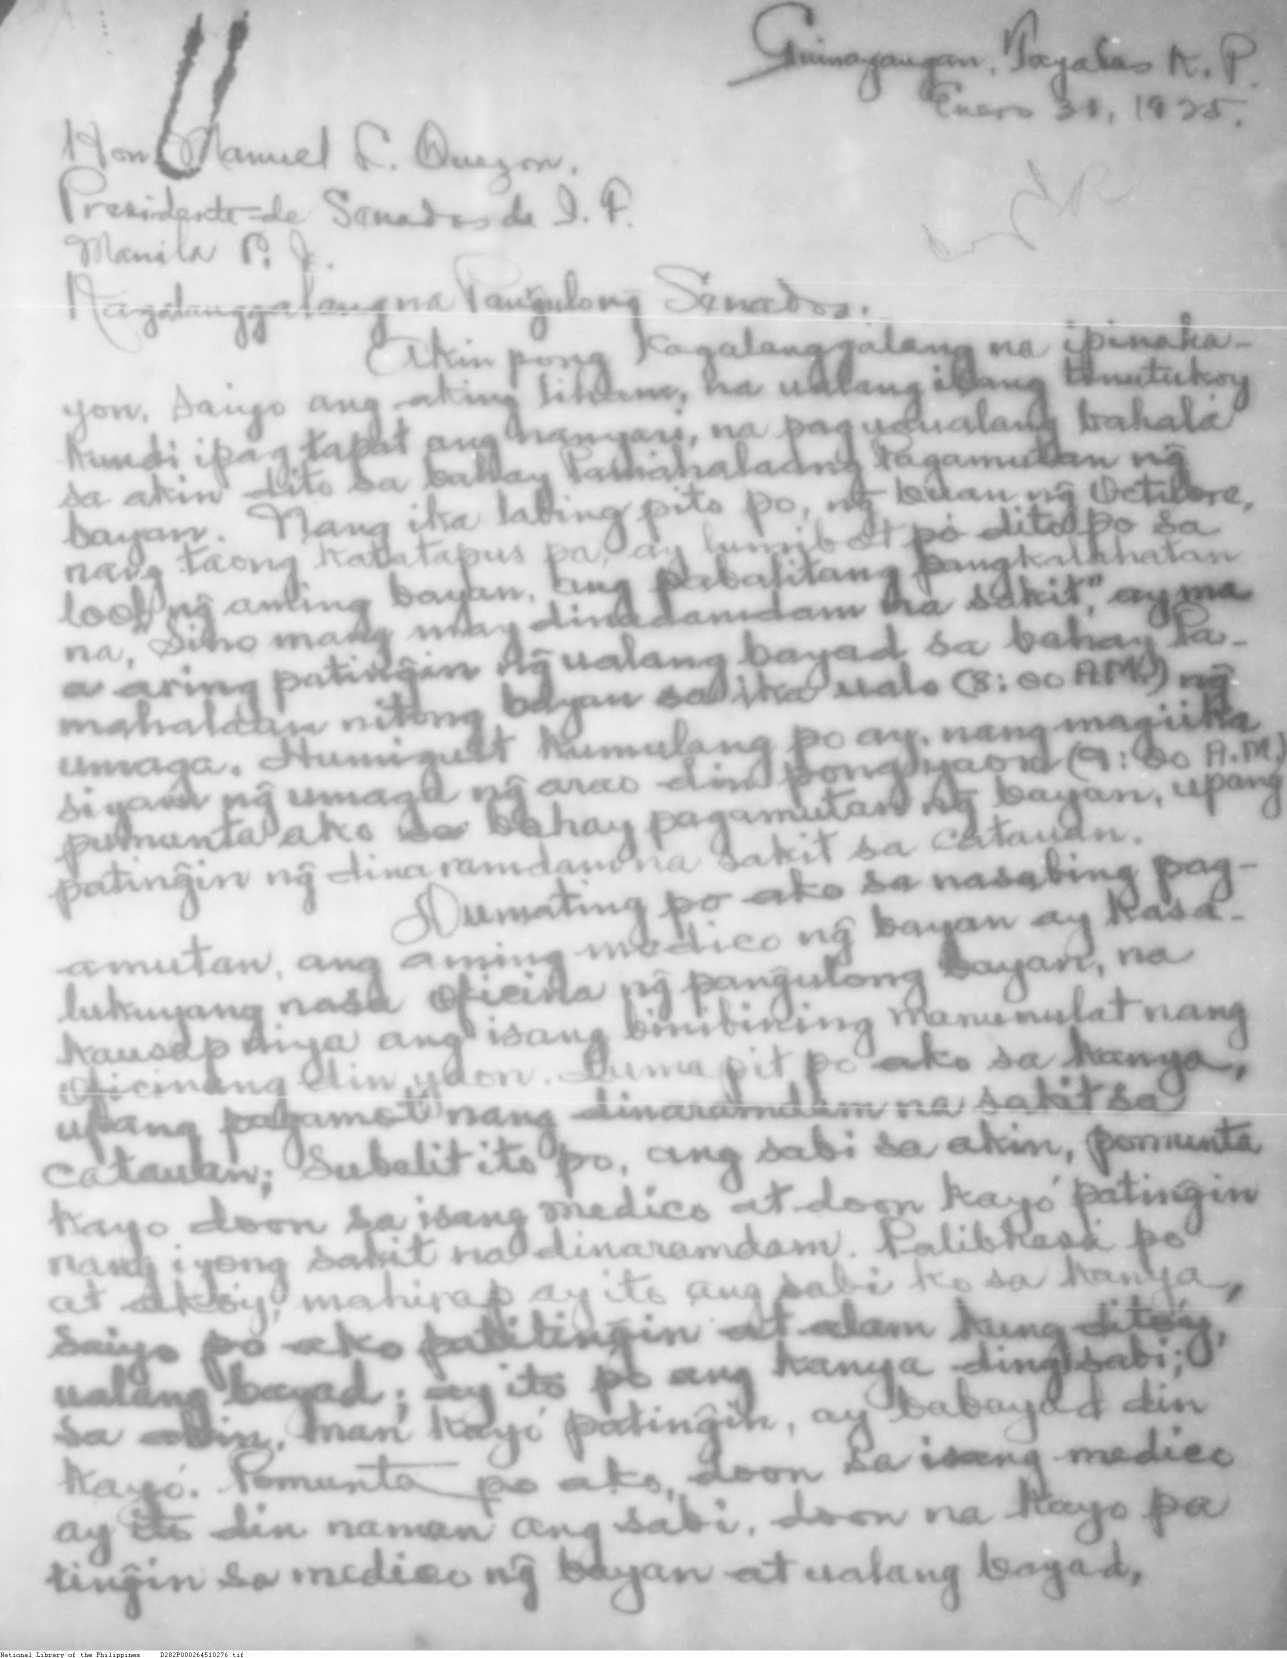 Guinayangan, Tayabas K. P.
Enero 31, 1925.
Hon. Manuel L. Quezon,
Presidente de Senados de I. P.
Manila P. I.
Kagalanggalang na Pangulong Senados.
Akin pong Kagalanggalang na ipinaka-
yon, saiyo ang aking liham, na ualang ibang tinutukoy
kundi ipag tapat ang nanyari, na pag ugualang bahalá
sa akin dito sa bahay Pamahalaang Pagamutan ng̃
bayan. Nang ika labing pito po, ng̃ buan ng̃ Octubre,
nang taong katatapus pa, ay lumibot po dito po sa
loob ng̃ aming bayan, ang pabalitang pangkalahatan
na, "Sino mang may dinadamdam na sakit," ay ma
a aring pating̃in ng̃ ualang bayad sa bahay Pa-
mahalaan nitong bayan sa ika ualo (8:00 A.M.) ng̃
umaga. Humiguit kumulang po ay, nang magiika
siyam ng̃ umaga ng̃ arao din pong yaon (9:00 A.M)
pumunta ako sa bahay pagamutan ng̃ bayan, upang
pating̃in ng̃ dinaramdam na sakit sa catauan.
Dumating po ako sa nasabing pag-
amutan, ang aming medico ng̃ bayan ay kasa-
lukuyang nasa oficina ng̃ pang̃ulong bayan, na
kausap niya ang isang binibining manunulat nang
oficinang din yaon. Lumapit po ako sa kanya,
upang pagamot nang dinaramdam na sakit sa
catauan; Subalit ito po, ang sabi sa akin, pomunta
kayo doon sa isang medico at doon kayo pating̃in
nang iyong sakit na dinaramdam. Palibhasa po
at ako'y, mahirap ay ito ang sabi ko sa kanya,
saiyo po ako patiting̃in at alam kung dito'y,
ualang bayad; ay ito po ang kanya ding sabi;
sa akin, man kayo pating̃in, ay babayad din
kayo. Pomunta po ako, doon sa isang medico
ay ito din naman ang sabi, doon na kayo pa
ting̃in sa medico ng̃ bayan at ualang bayad,
National Library of the Philippines D282P000264510276.tif